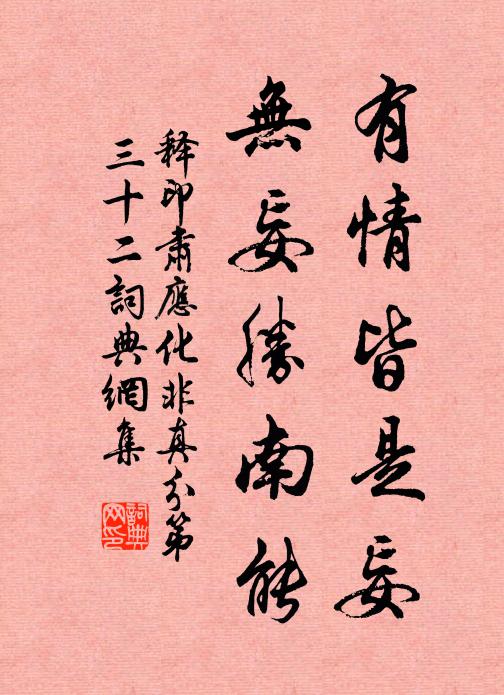 有情皆是妄
無妄勝南能
释印肅應化非真分第
三十二詞典網集
詞典網印